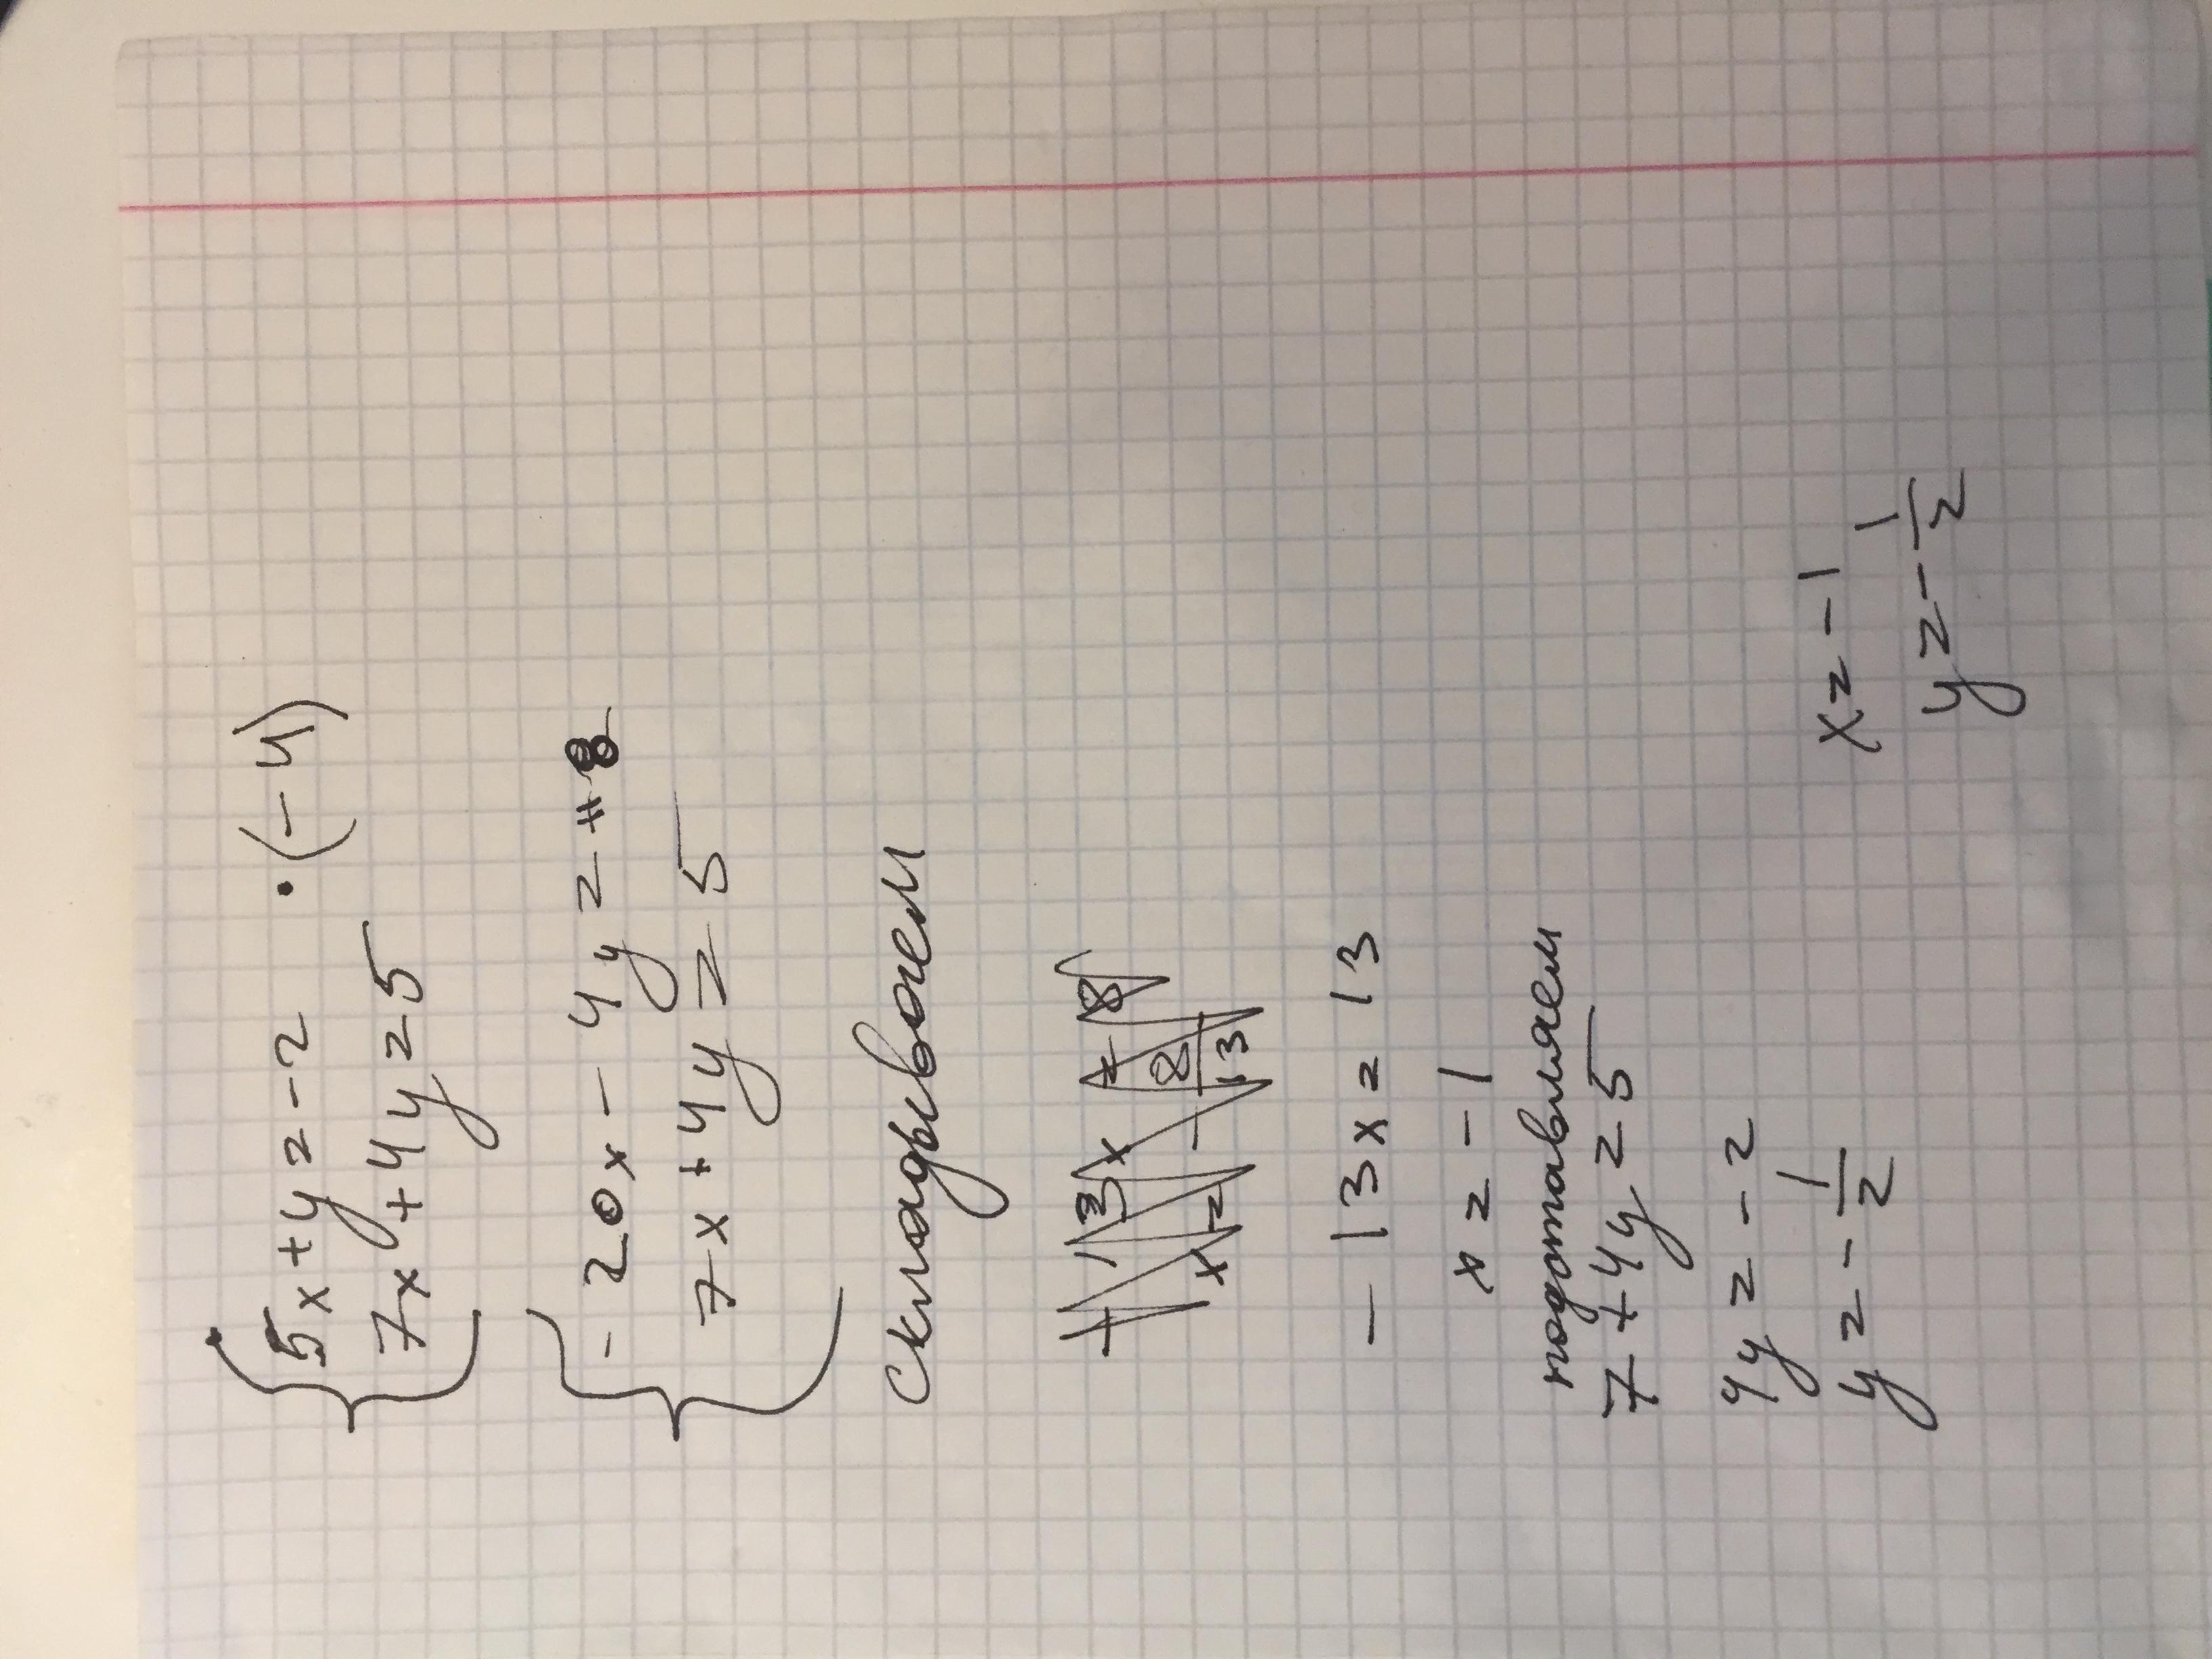 5x+y=-2 ·(-4)
7x+4y=5
-20x-4y=+8
7x+4y=5
складываем
-13x=13
x=-1
подставляем
7+4y=5
4y=-2
y=-1/2
x=-1
y=-1/2